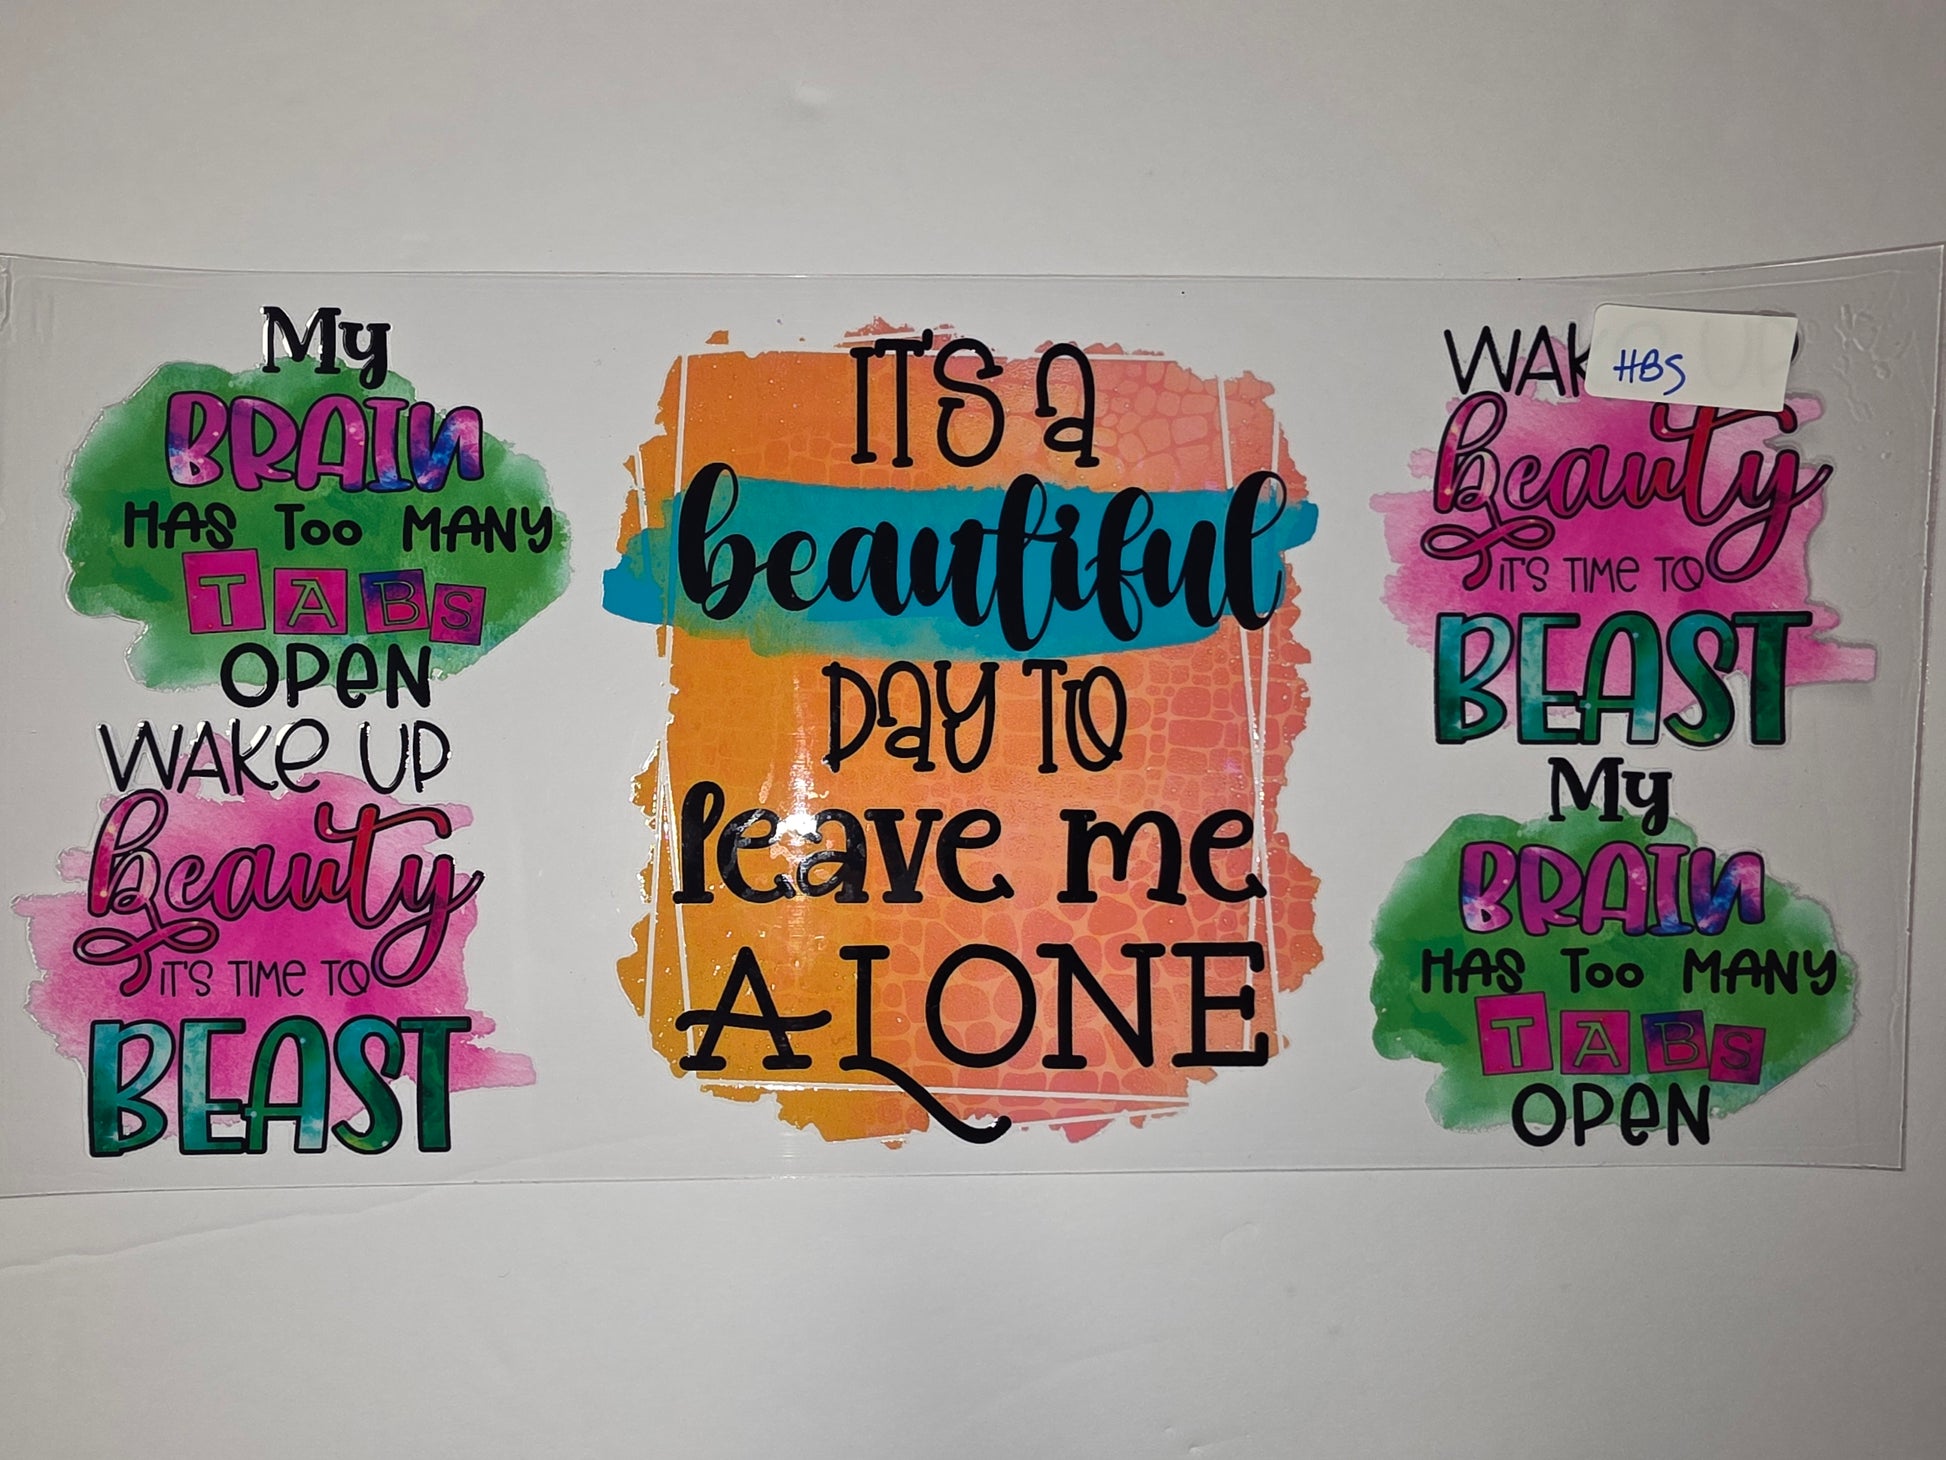 My
BRAIN
HAS Too MANY
TABS
OPEN
WAKE UP
Beauty
IT'S TIME TO
BEAST
IT'S A
beautiful
DAY TO
leave me
ALONE
HBS
Beauty
IT'S TIME TO
BEAST
My
BRAIN
HAS Too MANY
TABS
OPEN